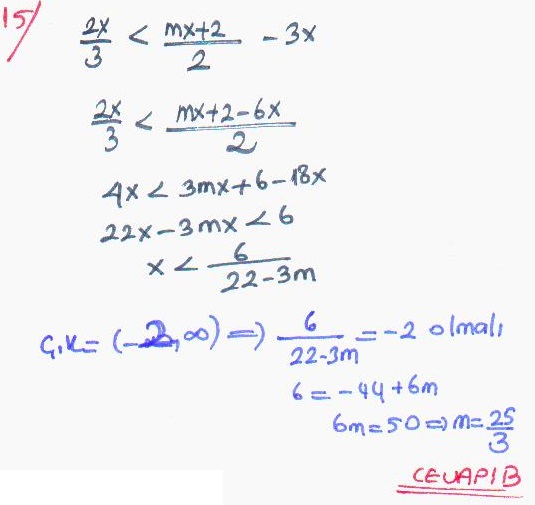 15/
2x/3 < (mx+2)/2 - 3x
2x/3 < (mx+2-6x)/2
4x < 3mx+6-18x
22x-3mx < 6
x < 6/(22-3m)
Ç.K= (-2,∞) => 6/(22-3m) = -2 olmalı
6 = -44+6m
6m=50 => m= 25/3
CEVAP B